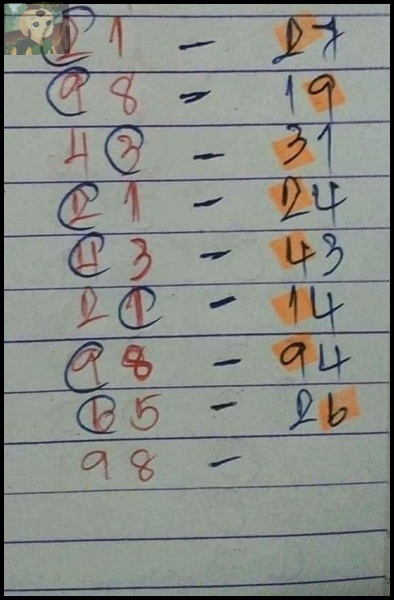 21 - 27
98 - 19
43 - 31
21 - 24
43 - 43
21 - 14
98 - 94
65 - 26
98 -